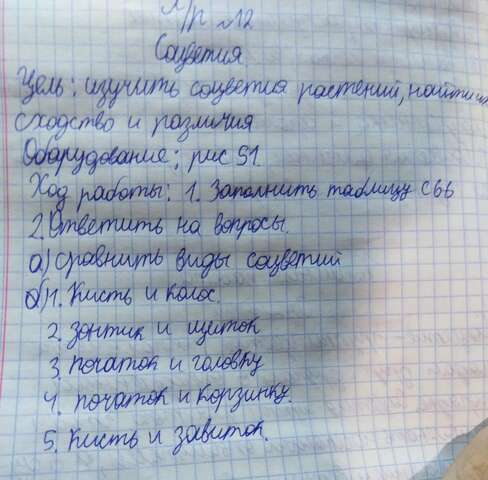 Л/р №12
Соцветия
Цель: изучить соцветия растений, найти их
сходство и различия
Оборудование; рис 51.
Ход работы: 1. Заполнить таблицу с66
2. Ответить на вопросы.
а) сравнить виды соцветий
б) 1. Кисть и колос.
2. зонтик и щиток
3. початок и головку
4. початок и корзинку.
5. Кисть и завиток.